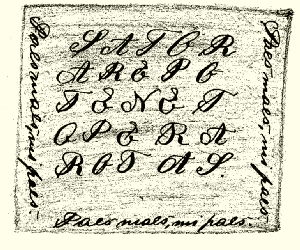 SATOR
AREPO
TENET
OPERA
ROTAS
Paes maes, mi paes.
Paes maes, mi paes.
Paes maes, mi paes.